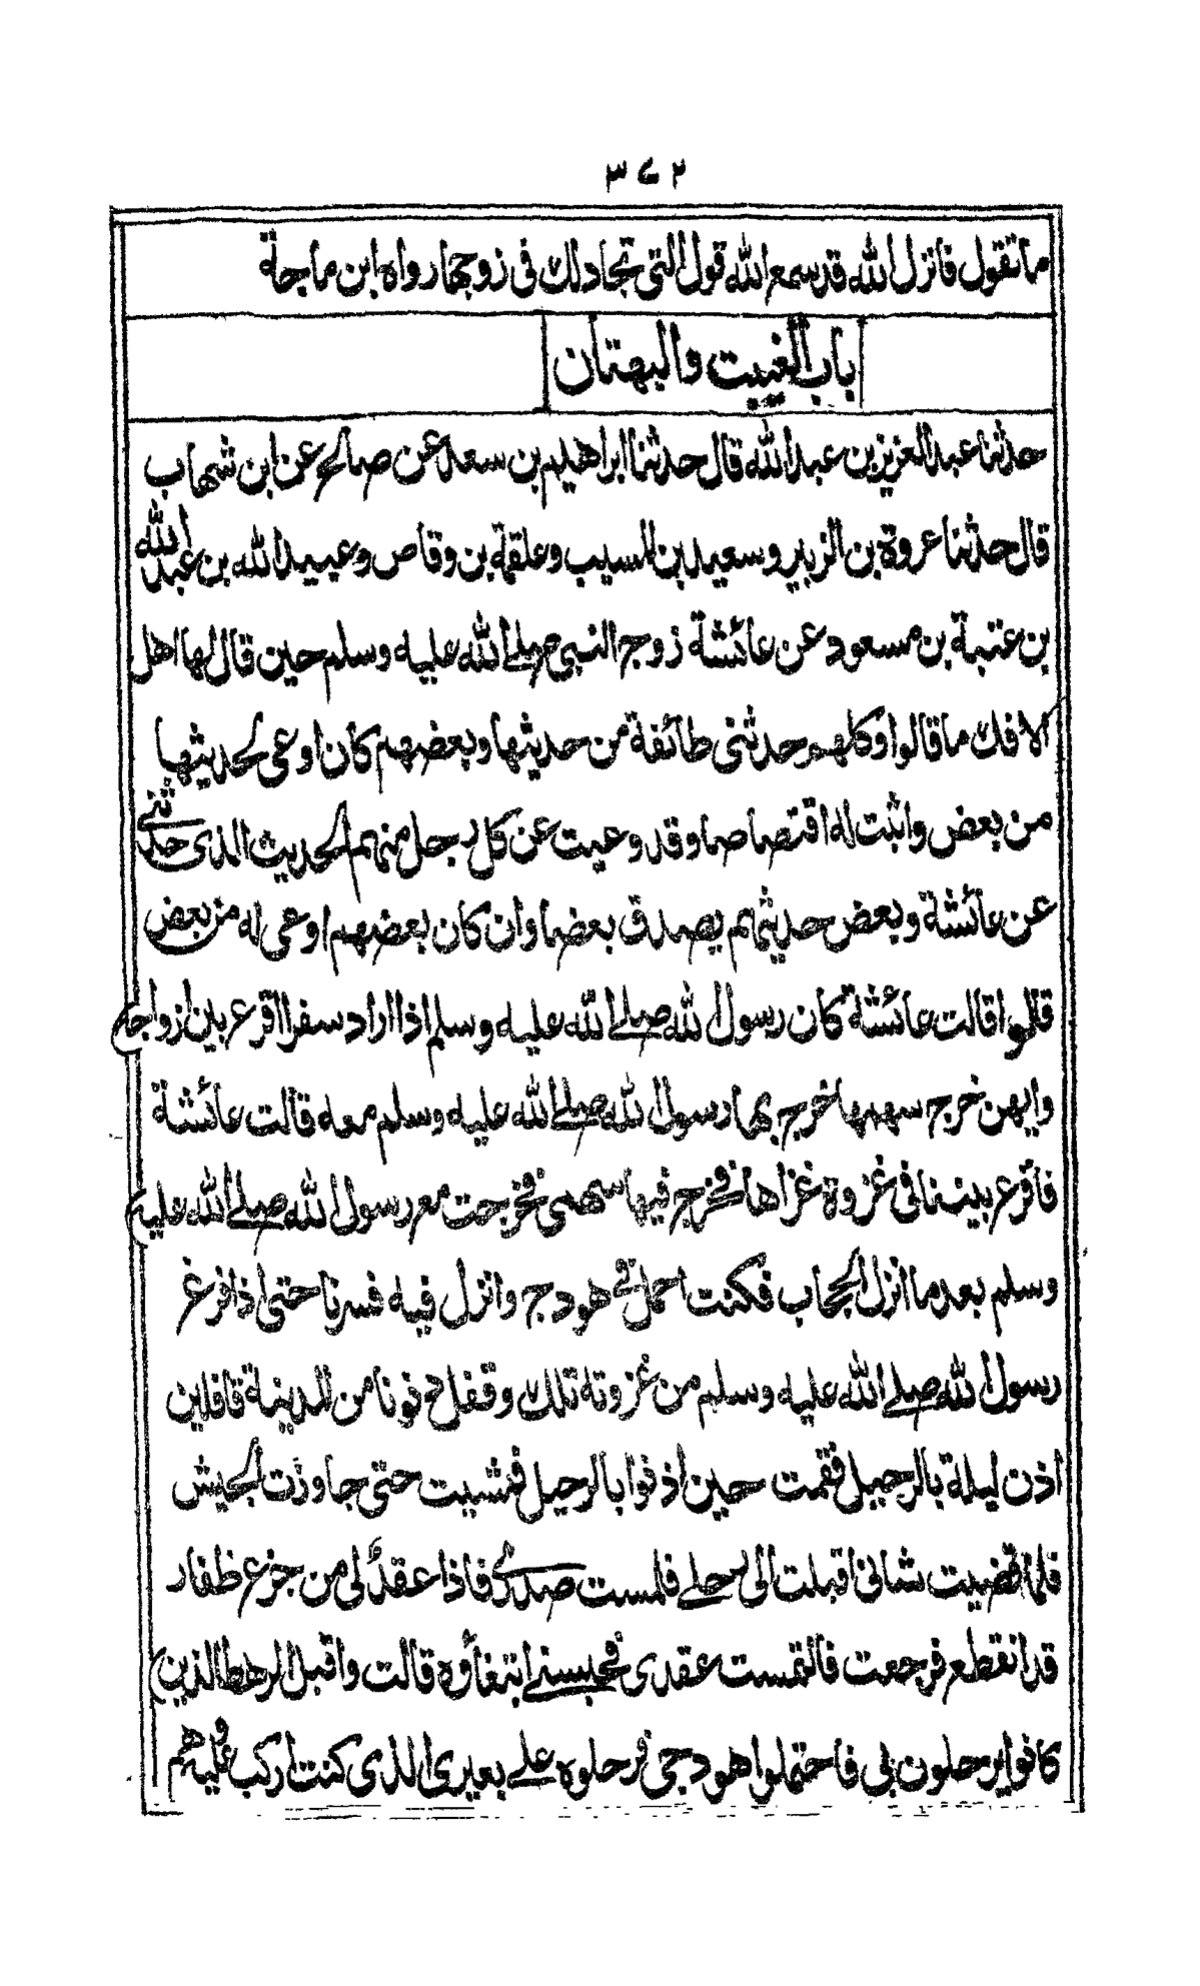 ٣٧٢
ما تقول فانزل الله قد سمع الله قول التى تجادلك فى زوجها رواه ابن ماجة
باب الغيبت والبهتان
حدثنا عبد العزيز بن عبد الله قال حدثنا ابراهيم بن سعد عن صالح عن ابن شهاب
قال حدثنا عروة بن الزبير وسعيد بن المسيب وعلقمة بن وقاص وعبيد الله بن عبد الله
بن عتبة بن مسعود عن عائشة زوج النبى صلى الله عليه وسلم حين قال لها اهل
الافك ما قالوا وكلهم حدثنى طائفة من حديثها وبعضهم كان اوعى لحديثها
من بعض واثبت له اقتصاصا وقد وعيت عن كل رجل منهم الحديث الذى حدثنى
عن عائشة وبعض حديثهم يصدق بعضا وان كان بعضهم اوعى له من بعض
قالوا قالت عائشة كان رسول الله صلى الله عليه وسلم اذا اراد سفرا اقرع بين ازواجه
وايهن خرج سهمها خرج بها رسول الله صلى الله عليه وسلم معه قالت عائشة
فاقرع بيننا فى غزوة غزاها فخرج فيها سهمى فخرجت مع رسول الله صلى الله عليه
وسلم بعد ما انزل الحجاب فكنت احمل فى هودج وانزل فيه فسرنا حتى اذا فرغ
رسول الله صلى الله عليه وسلم من غزوته تلك وقفل دنونا من المدينة قافلين
اذن ليلة بالرحيل فقمت حين اذنوا بالرحيل فمشيت حتى جاوزت الجيش
فلما قضيت شانى اقبلت الى رحلى فلمست صدرى فاذا عقد لى من جزع ظفار
قد انقطع فرجعت فالتمست عقدى فحبسنى ابتغاؤه قالت واقبل الرهط الذين
كانوا يرحلون بى فاحتملوا هودجى فرحلوه على بعيرى الذى كنت اركب عليه وهم